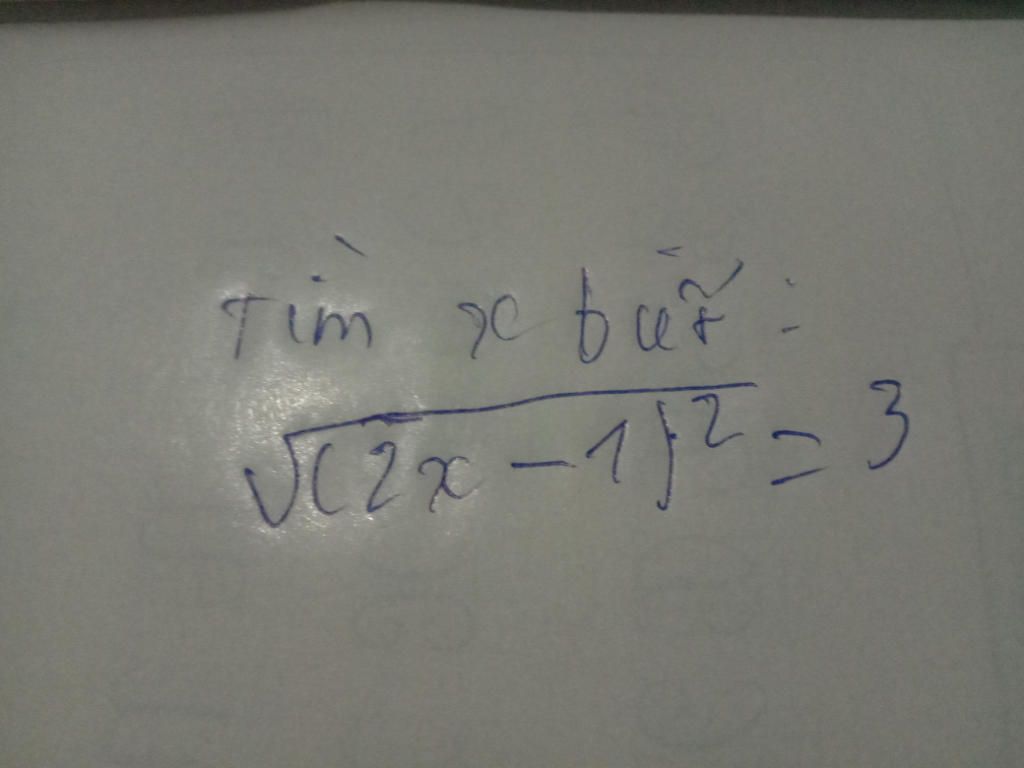 Tìm x biết:
√(2x-1)² = 3